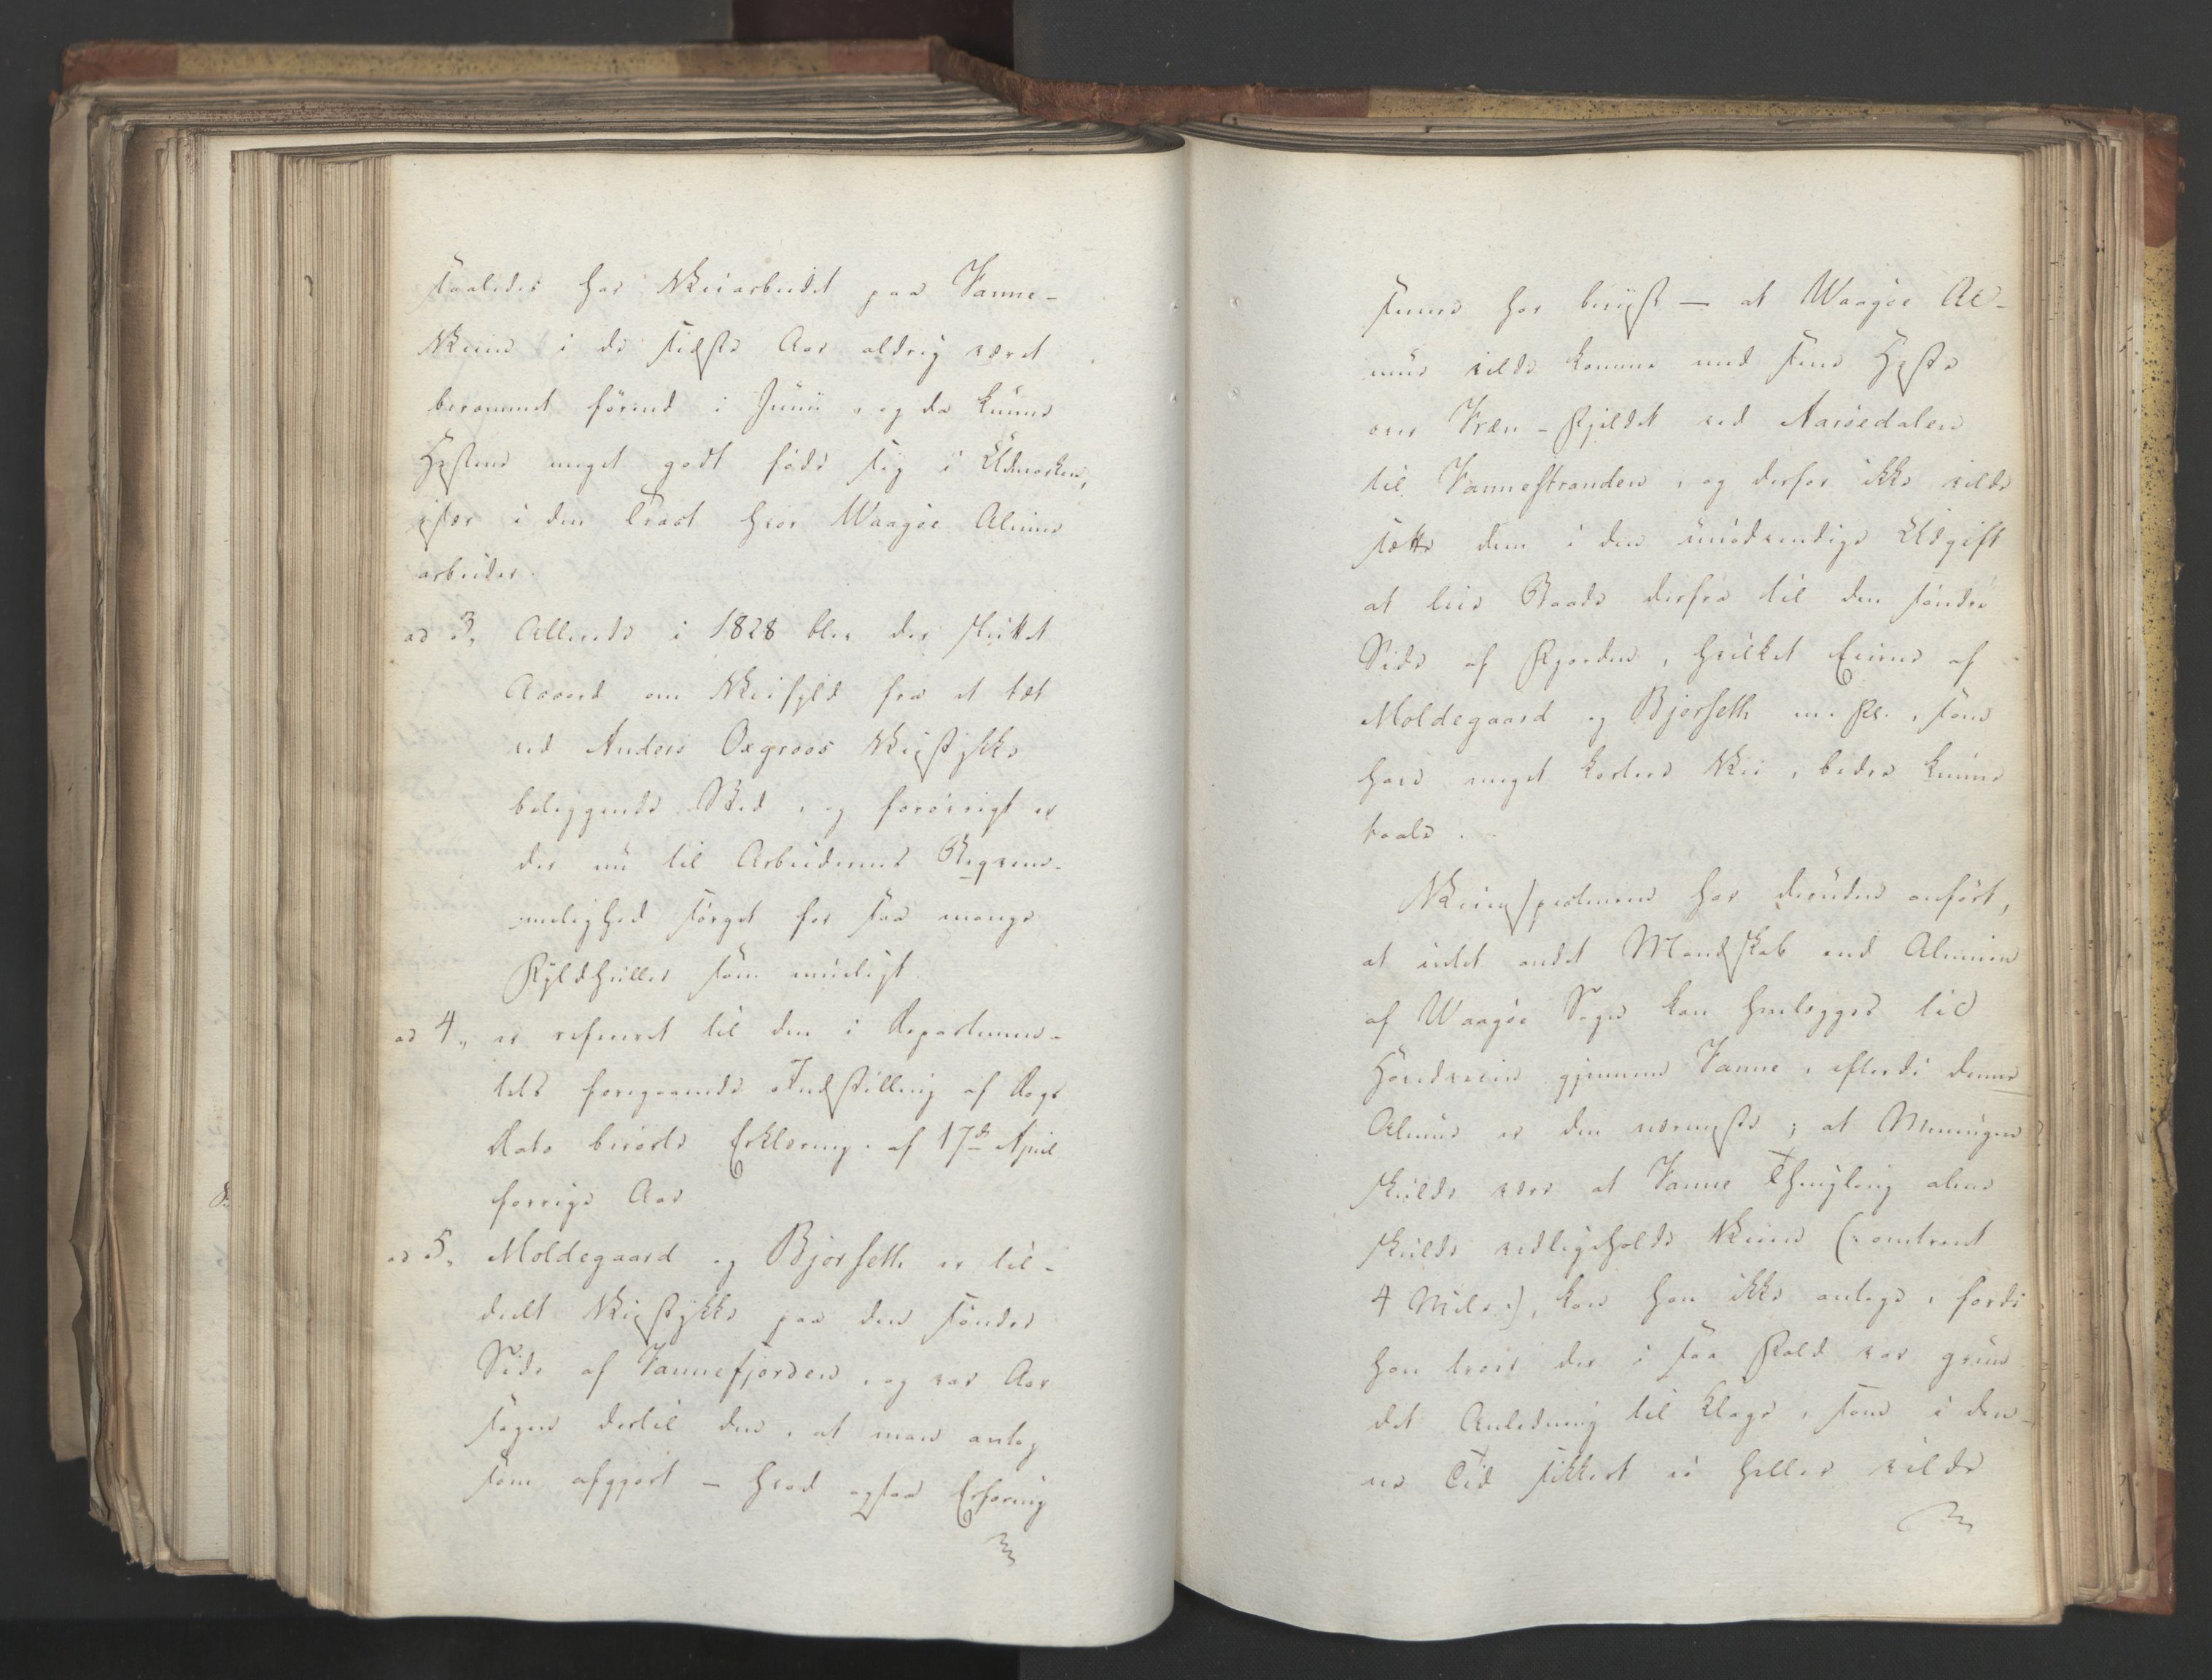 saaledes har Veiarbeidet paa Vanne-
Veien i de sidste Aar aldrig været
berammet förend i Junii, og da kunne
Hestene meget godt föde sig i Udmarken,
især i den Tract hvor Waagöe Almue
arbeider.
ad 3, Allerede i 1828 blev der sluttet
Accord om Veifyld fra et tæt
ved Anders Oxgroos Veistykke
beliggende Sted, og forövrigt er
der nu til Arbeidernes Beqvem-
melighed sörget for saa mange
Fyldhuller som mueligt
ad 4, er refereret til den i Departemen-
tets foregaaende Indstilling af Dags
Dato berörte Erklæring af 17de April
forrige Aar
ad 5, Moldegaard og Björseth er til-
deelt Veistykke paa den söndre
Side af Vannefjorden, og var Aar
sagen dertil den, at man antog
som afgjort – hvad ogsaa Erfaring
senere har beviist — at Waagöe Al-
mue vilde komme med sine Heste
over Fjeldet ved Aaröedalen
til Vannestranden, og derfor ikke vilde
sætte dem i den unödvendige Udgift
at leie Baade derfra til den söndre
Side af Fjorden, hvilket Eierne af
Moldegaard og Björseth m. Fl., som
have meget kortere Vei, bedre kunne
taale.
Veiinspecteuren har desuden anfört,
at intet andet Mandskab end Almuen
af Waagöe Sogn kan henlægges til
Hovedveien gjennem Vanne, efterdi denne
Almue er den nærmeste; at Meningen
skulde være at Vanne Thinglaug alene
skulde vedligeholde Veien (: omtrent
4 Mile :), kan han ikke antage, fordi
han troer der i saa Fald var grun
det Anledning til Klage, som i den-
ne Tid sikkert ei heller vilde